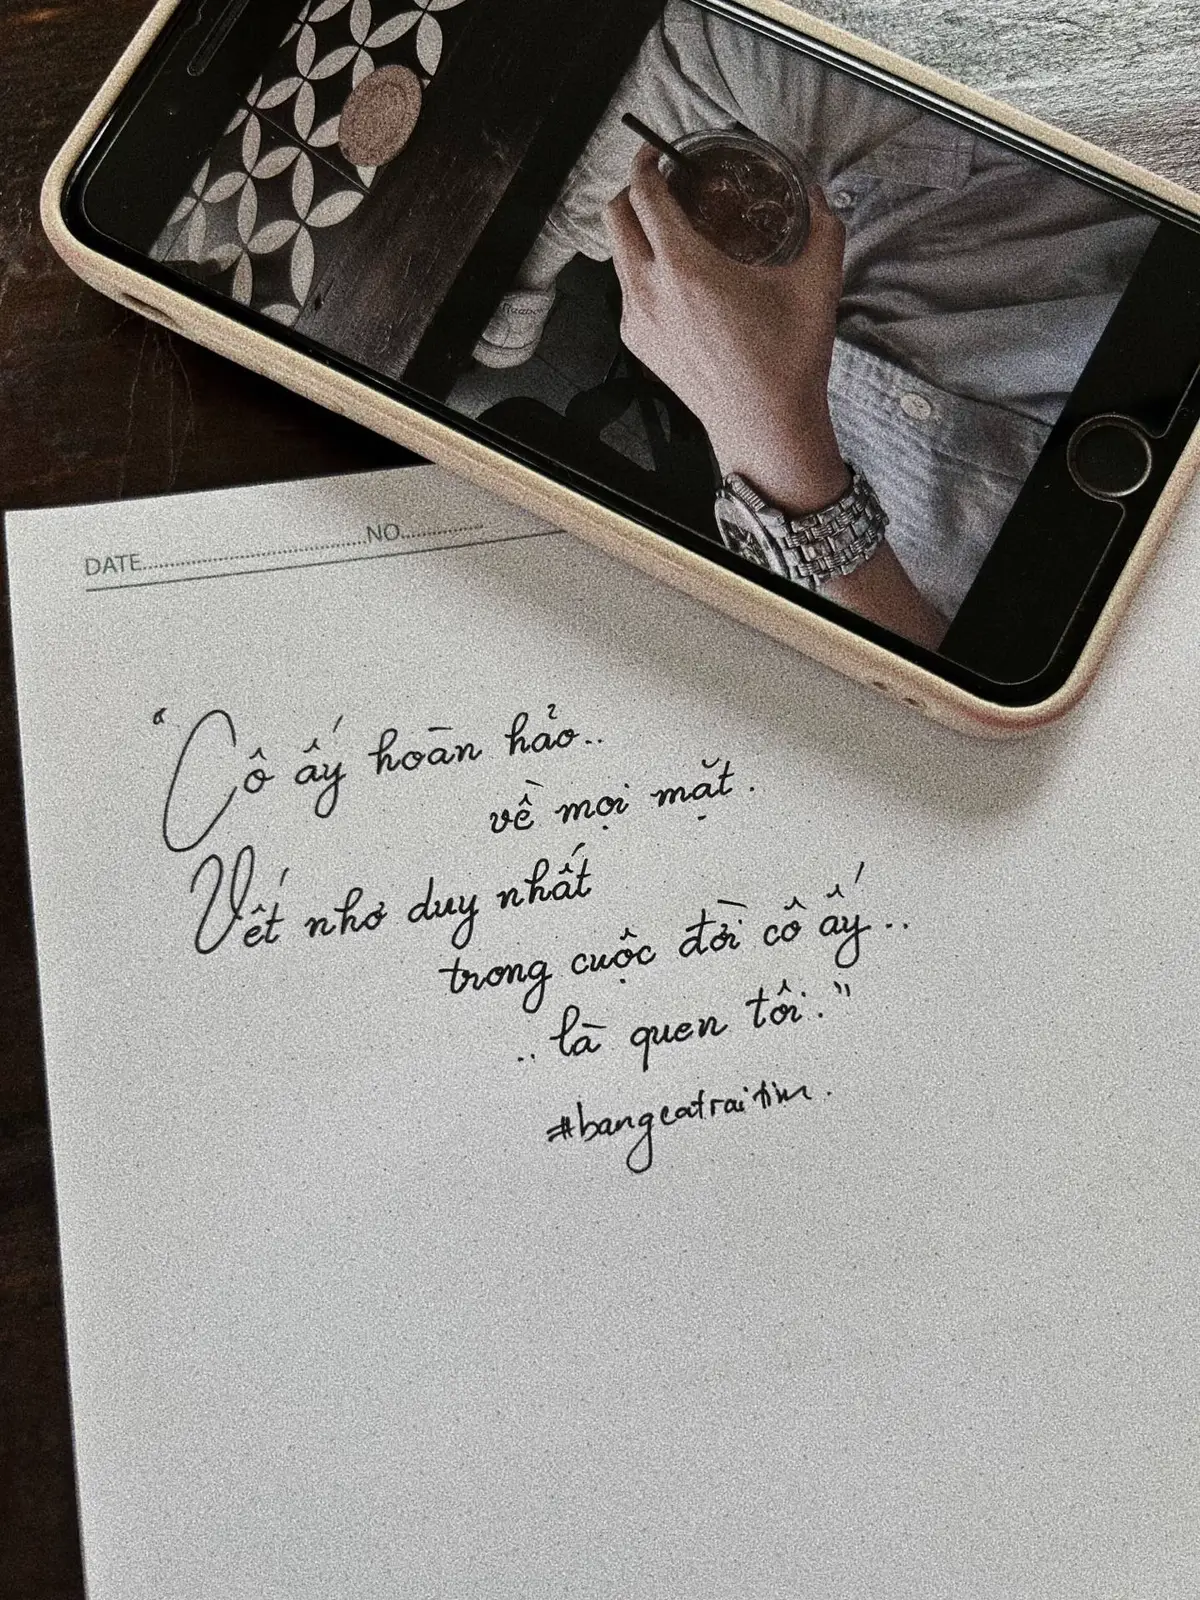 DATE............................................NO................
"Cô ấy hoàn hảo..
về mọi mặt.
Vết nhơ duy nhất
trong cuộc đời cô ấy..
..là quen tôi."
#bangcatraitim.